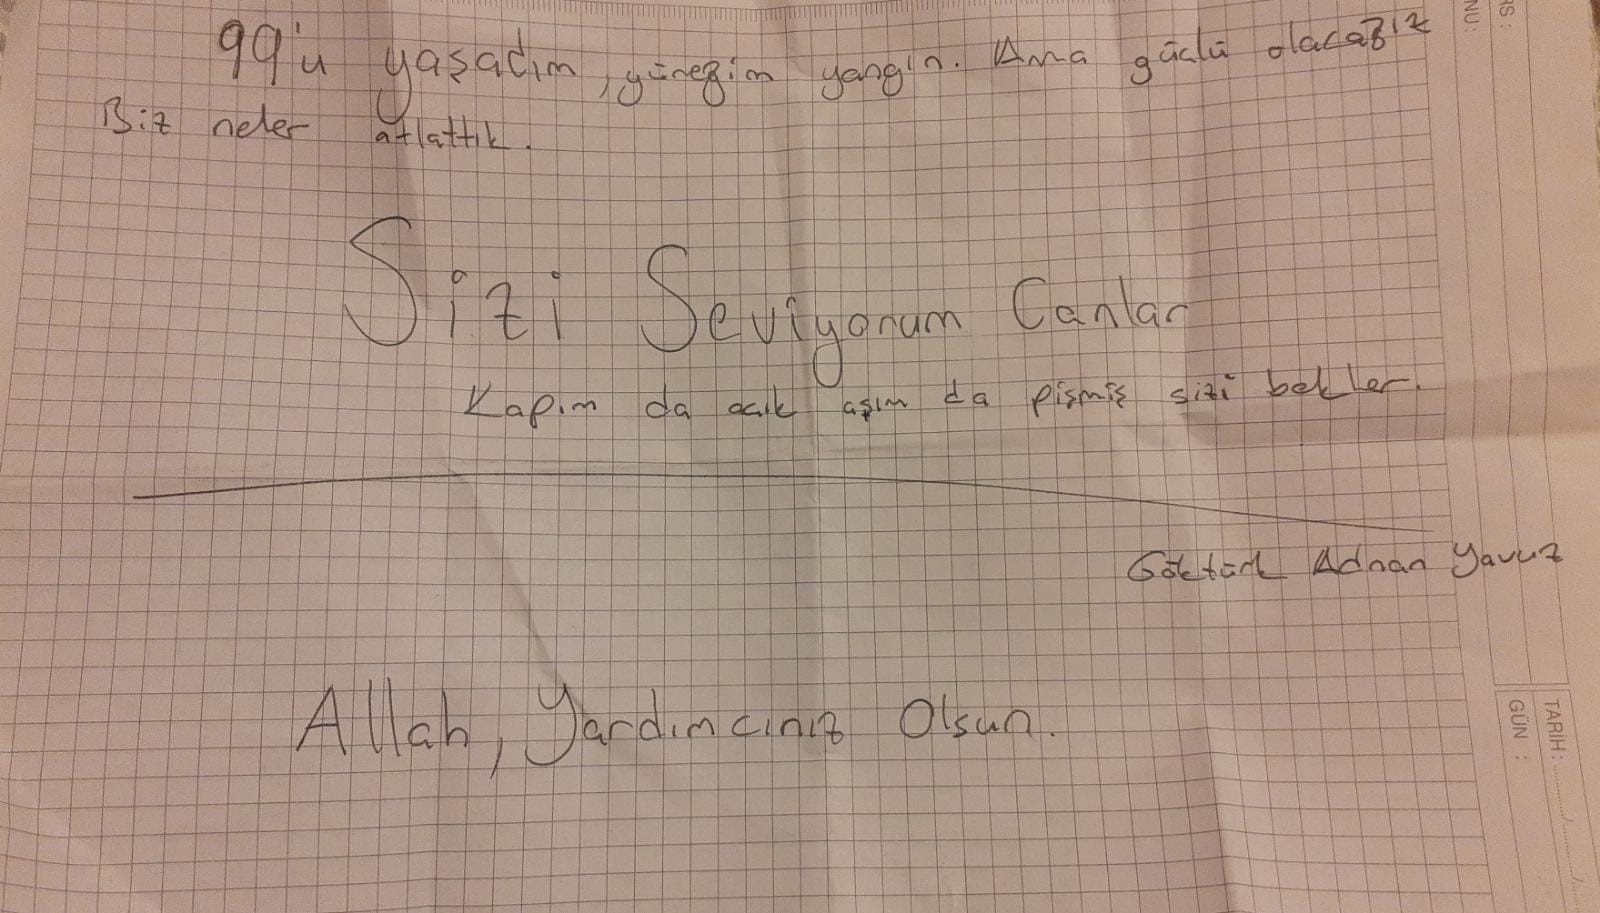 99'u yaşadım, yüreğim yangın. Ama güçlü olacağız
Biz neler atlattık.
Sizi Seviyorum Canlar
Kapım da acık aşım da pişmiş sizi bekler.
Göktürk Adnan Yavuz
Allah, Yardımcınız Olsun.
TARİH:
GÜN :
RS:
NU: